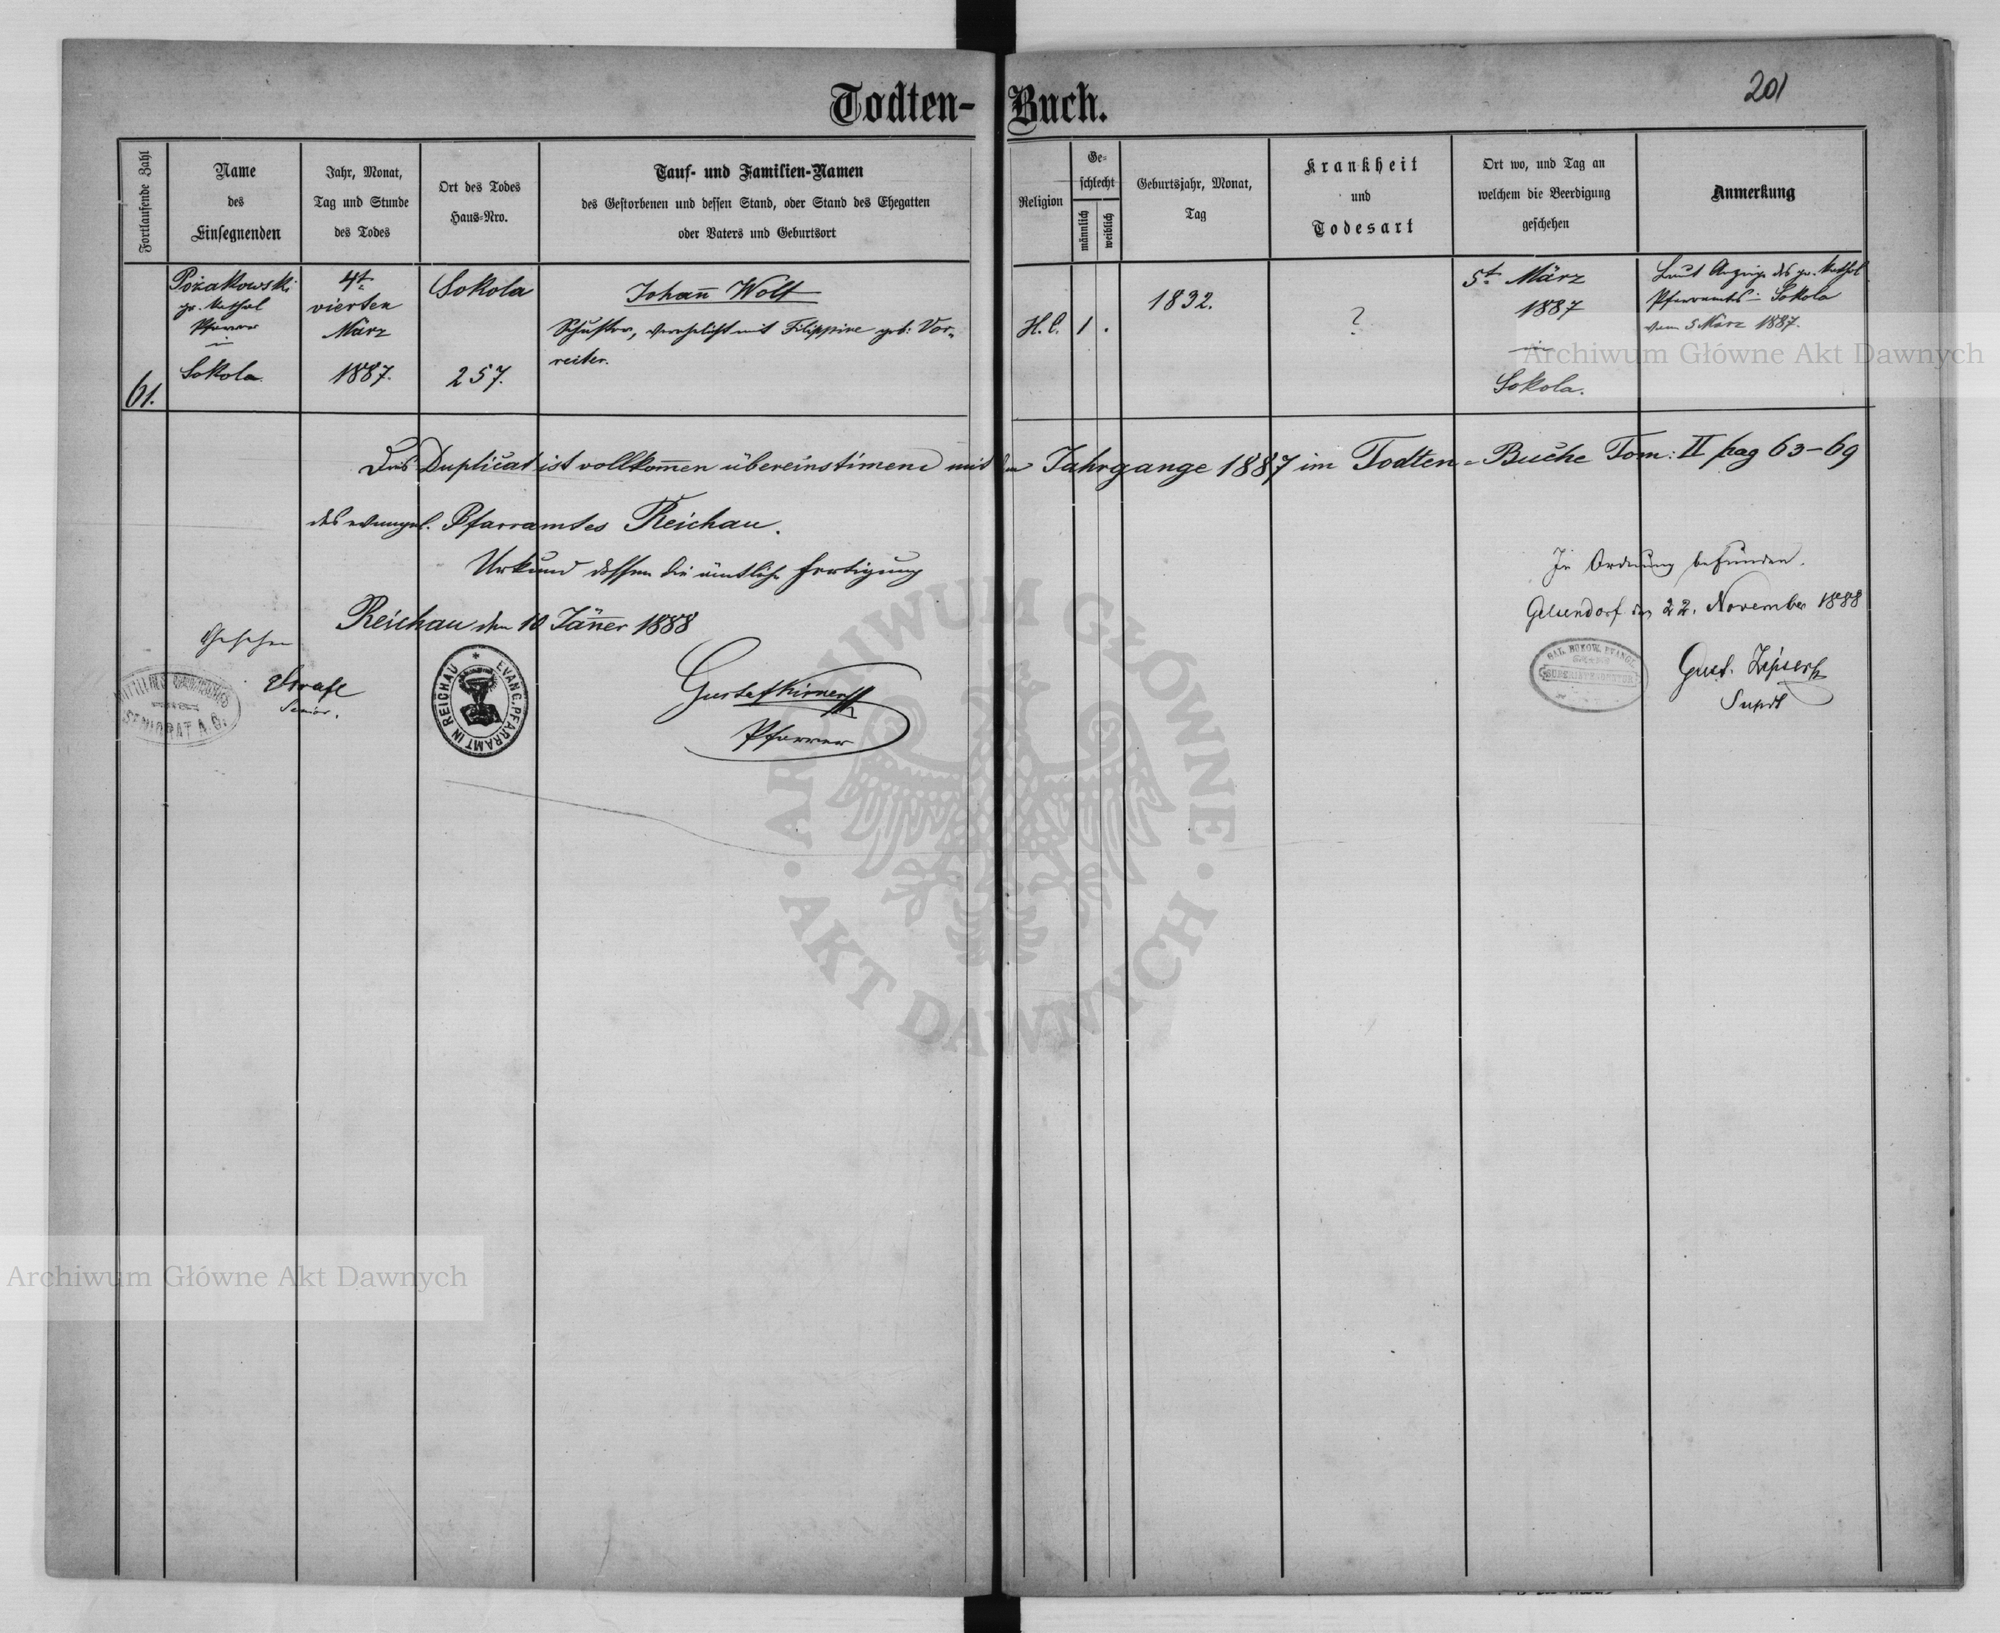 Todten-Buch.
201
Fortlaufende Zahl
Name
des
Einsegnenden
Jahr, Monat,
Tag und Stunde
des Todes
Ort des Todes
Haus-Nro.
Tauf- und Familien-Namen
des Gestorbenen und dessen Stand, oder Stand des Ehegatten
oder Vaters und Geburtsort
Religion
Ge-
schlecht
männlich
weiblich
Geburtsjahr, Monat,
Tag
Krankheit
und
Todesart
Ort wo, und Tag an
welchem die Beerdigung
geschehen
Anmerkung
61.
Pożakowski
gr. kathol
Pfarrer
in
Sokola
4t.
vierten
März
1887.
Sokola
257.
Johan̄ Wolf
Schuster, verehelicht mit Filippine geb. Vor-
reiter.
H. C.
1
.
1832.
?
5t. März
1887
in
Sokola.
Laut Anzeige des gr. kathol
Pfarramts in Sokola
vom 5 März 1887.
Das Duplicat ist vollkom̄en übereinstimend mit dem Jahrgange 1887 im Todten-Buche Tom: II pag 63-69
des evangel. Pfarramtes Reichau.
Urkund dessen die ämtliche Fertigung
Reichau den 10 Jän̄er 1888
Gesehen
Senior.
SENIORAT A. C.
EVANG. PFARRAMT IN REICHAU
Pfarrer
In Ordnung befunden.
Gelsendorf den 22. November 1888
Gust. Zipser
Supdt
Archiwum Główne Akt Dawnych
Archiwum Główne Akt Dawnych
ARCHIWUM GŁÓWNE AKT DAWNYCH